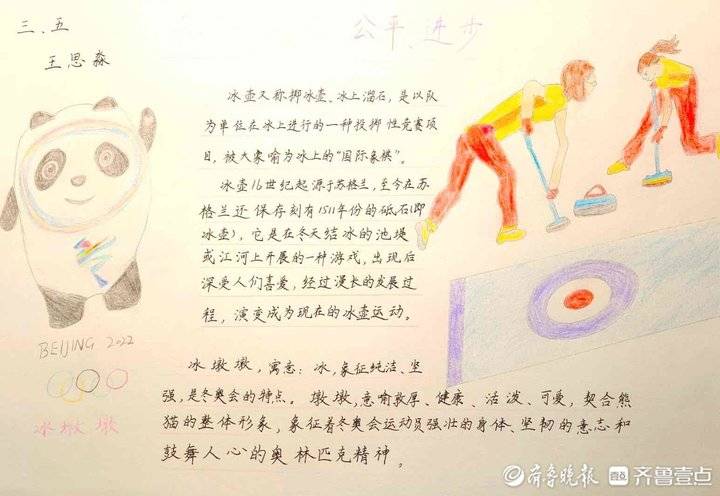 三、五
王思淼
公平、进步
冰壶又称掷冰壶、冰上溜石，是以队
为单位在冰上进行的一种投掷性竞赛项
目，被大家喻为冰上的“国际象棋”。
冰壶16世纪起源于苏格兰，至今在苏
格兰还保存刻有1511年份的砥石(即
冰壶)，它是在冬天结冰的池堤
或江河上开展的一种游戏，出现后
深受人们喜爱，经过漫长的发展过
程，演变成为现在的冰壶运动。
BEIJING 2022
冰墩墩
冰墩墩，寓意：冰，象征纯洁、坚
强，是冬奥会的特点。墩墩，意喻敦厚、健康、活泼、可爱，契合熊
猫的整体形象，象征着冬奥会运动员强壮的身体、坚韧的意志和
鼓舞人心的奥林匹克精神。
齐鲁晚报 齐鲁壹点